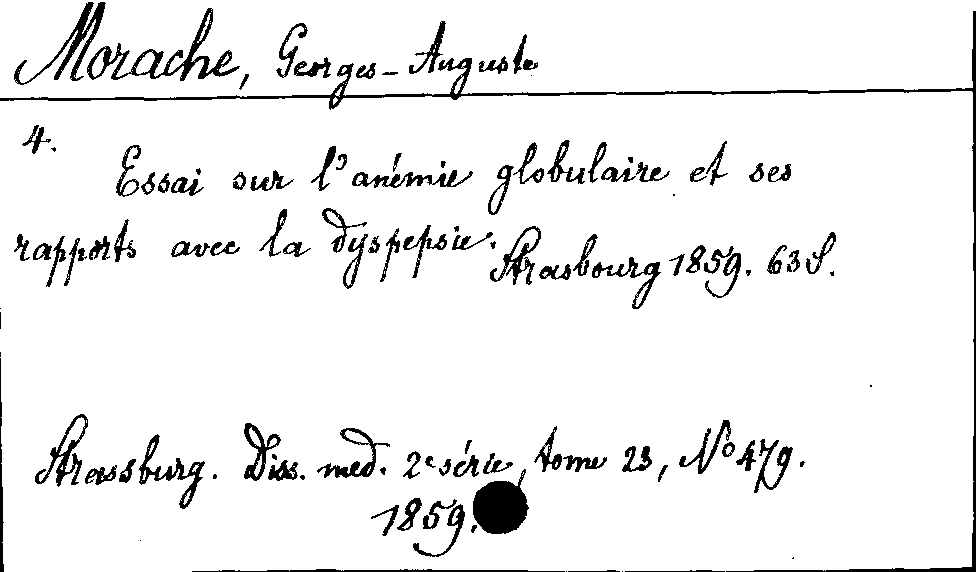 Morache, Georges-Auguste
4.
Essai sur l'anémie globulaire et ses
rapports avec la dyspepsie.
Strasbourg 1859. 63 S.
Strassburg. Diss. med. 2e série, tome 23, No 479.
1859.